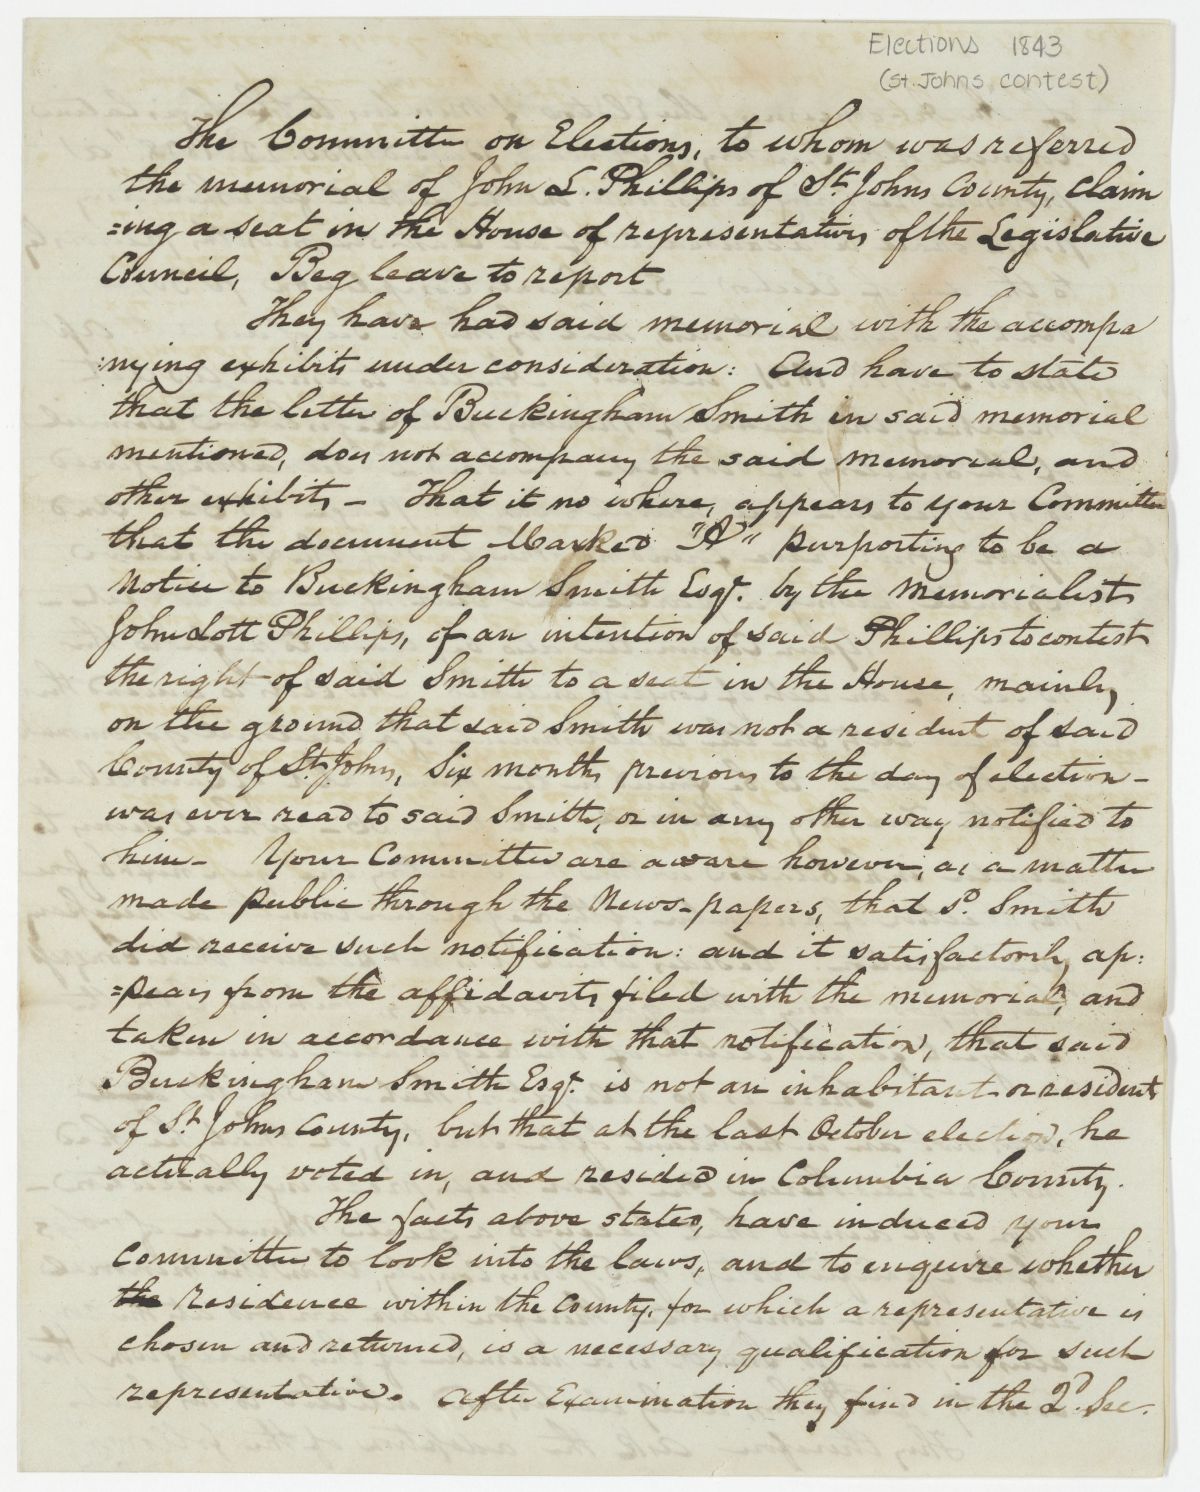 Elections 1843
(St. Johns contest)
The Committee on Elections, to whom was referred
the memorial of John L. Phillips of St. Johns County, claim
=ing a seat in the House of representatives of the Legislative
Council, Beg leave to report
They have had said memorial with the accompa
:nying exhibits under consideration: And have to state
that the letter of Buckingham Smith in said memorial
mentioned, does not accompany the said memorial, and
other exhibits - That it no where, appears to your Committee
that the document Marked "A" purporting to be a
Notice to Buckingham Smith Esqr. by the Memorialist
John Lott Phillips, of an intention of said Phillips to contest
the right of said Smith to a seat in the House, mainly
on the ground that said Smith was not a resident of said
County of St. Johns, Six months previous to the day of election -
was ever read to said Smith, or in any other way notified to
him - Your Committee are aware however, as a matter
made public through the News-papers, that sd. Smith
did receive such notification: and it satisfactorily ap:
=pears from the affidavits filed with the memorial, and
taken in accordance with that notification, that said
Buckingham Smith Esqr. is not an inhabitant or resident
of St Johns County, but that at the last October election, he
actually voted in, and resided in Columbia County.
The facts above stated, have induced your
Committee to look into the laws, and to enquire whether
the residence within the County, for which a representative is
chosen and returned, is a necessary qualification for such
representative. After Examination they find in the 2d. Sec.